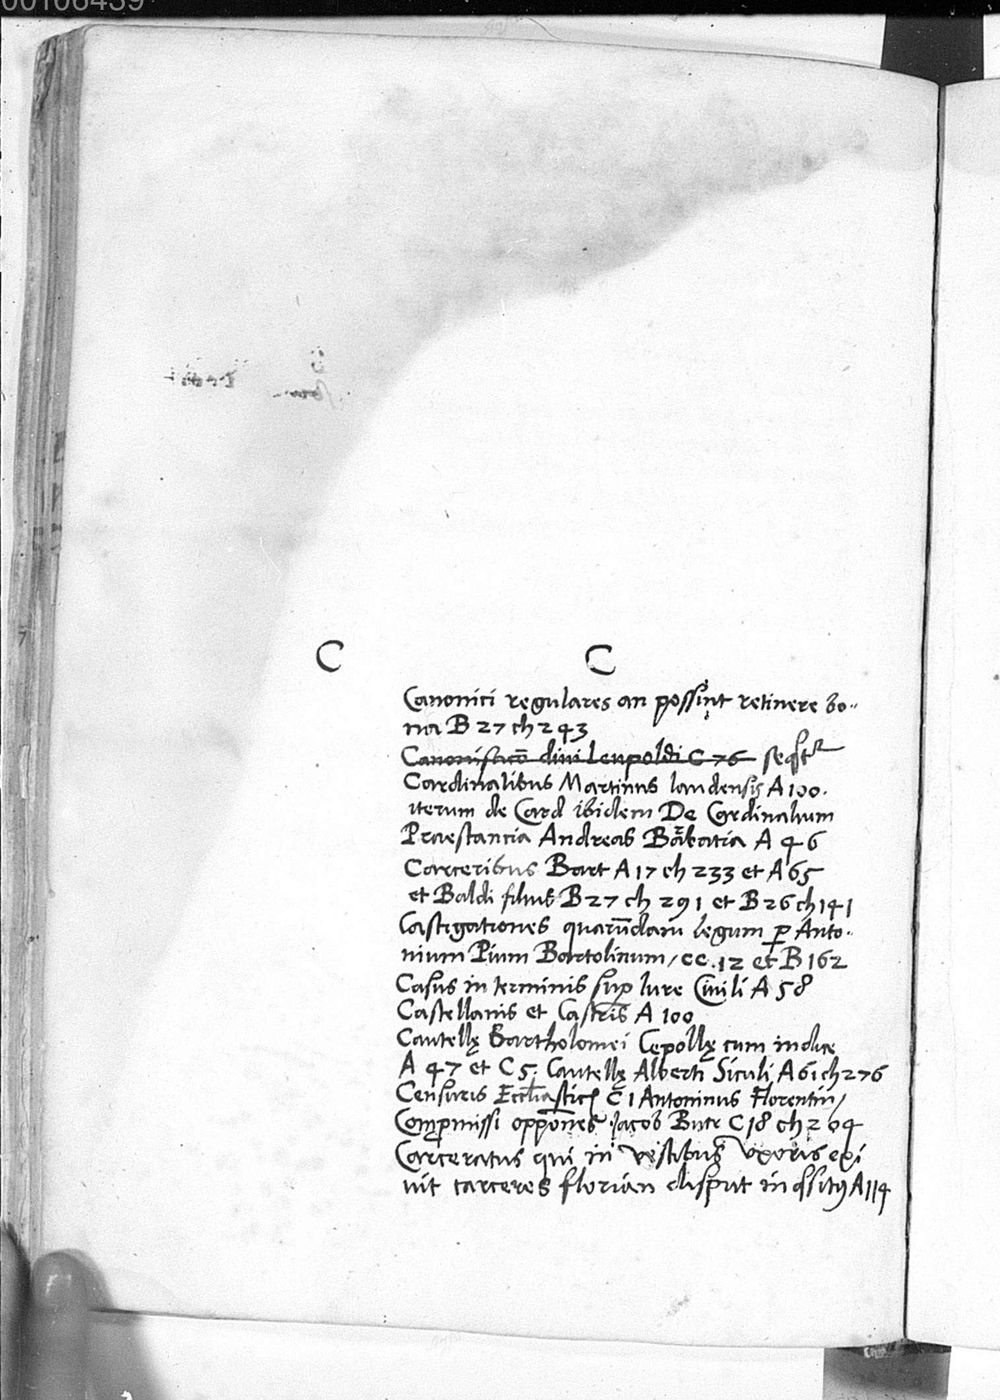 00106439
C C
Canonici regulares an possint retinere bo-
na B 27 ch 243
Canonisatio divi Leupoldi C 76
Cardinalibus Martinus laudensis A 100.
iterum de Card ibidem De Cardinalium
Praestancia Andreas Barbatia A 46
Carceribus Bart A 17 ch 233 et A 65
et Baldi filius B 27 ch 291 et B 26 ch 141
Castigationes quarundam legum p Anto-
nium Pium Bartolinum / CC .12 et B 162
Casus in terminis sup Iure Civili A 58
Castellanis et Castris A 100
Cautellę Bartholomei Cepollę cum indice
A 47 et C 5. Cautellę Alberti Siculi A 61 ch 276
Censuris C 1 Antoninus Florentin /
Compmissi oppones Jacob Butr C 18 ch 204
Carceratus qui in vestibus uxoris exi
vit carceres florian disput A 114